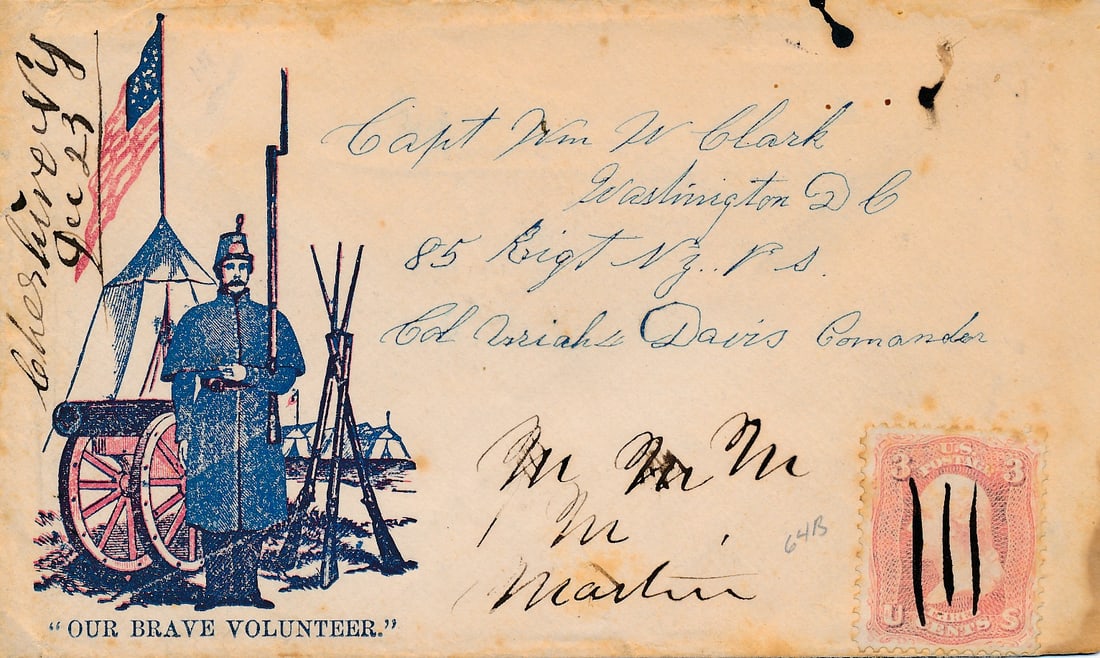 Cheshire NY
Dec 23
Capt Wm W Clark
Washington D C
85 Rigt N.y. V s.
Col Uriah L Davis Comander
M M M
M
Martin
64B
3 U.S. 3
POSTAGE
U CENTS S
"OUR BRAVE VOLUNTEER."